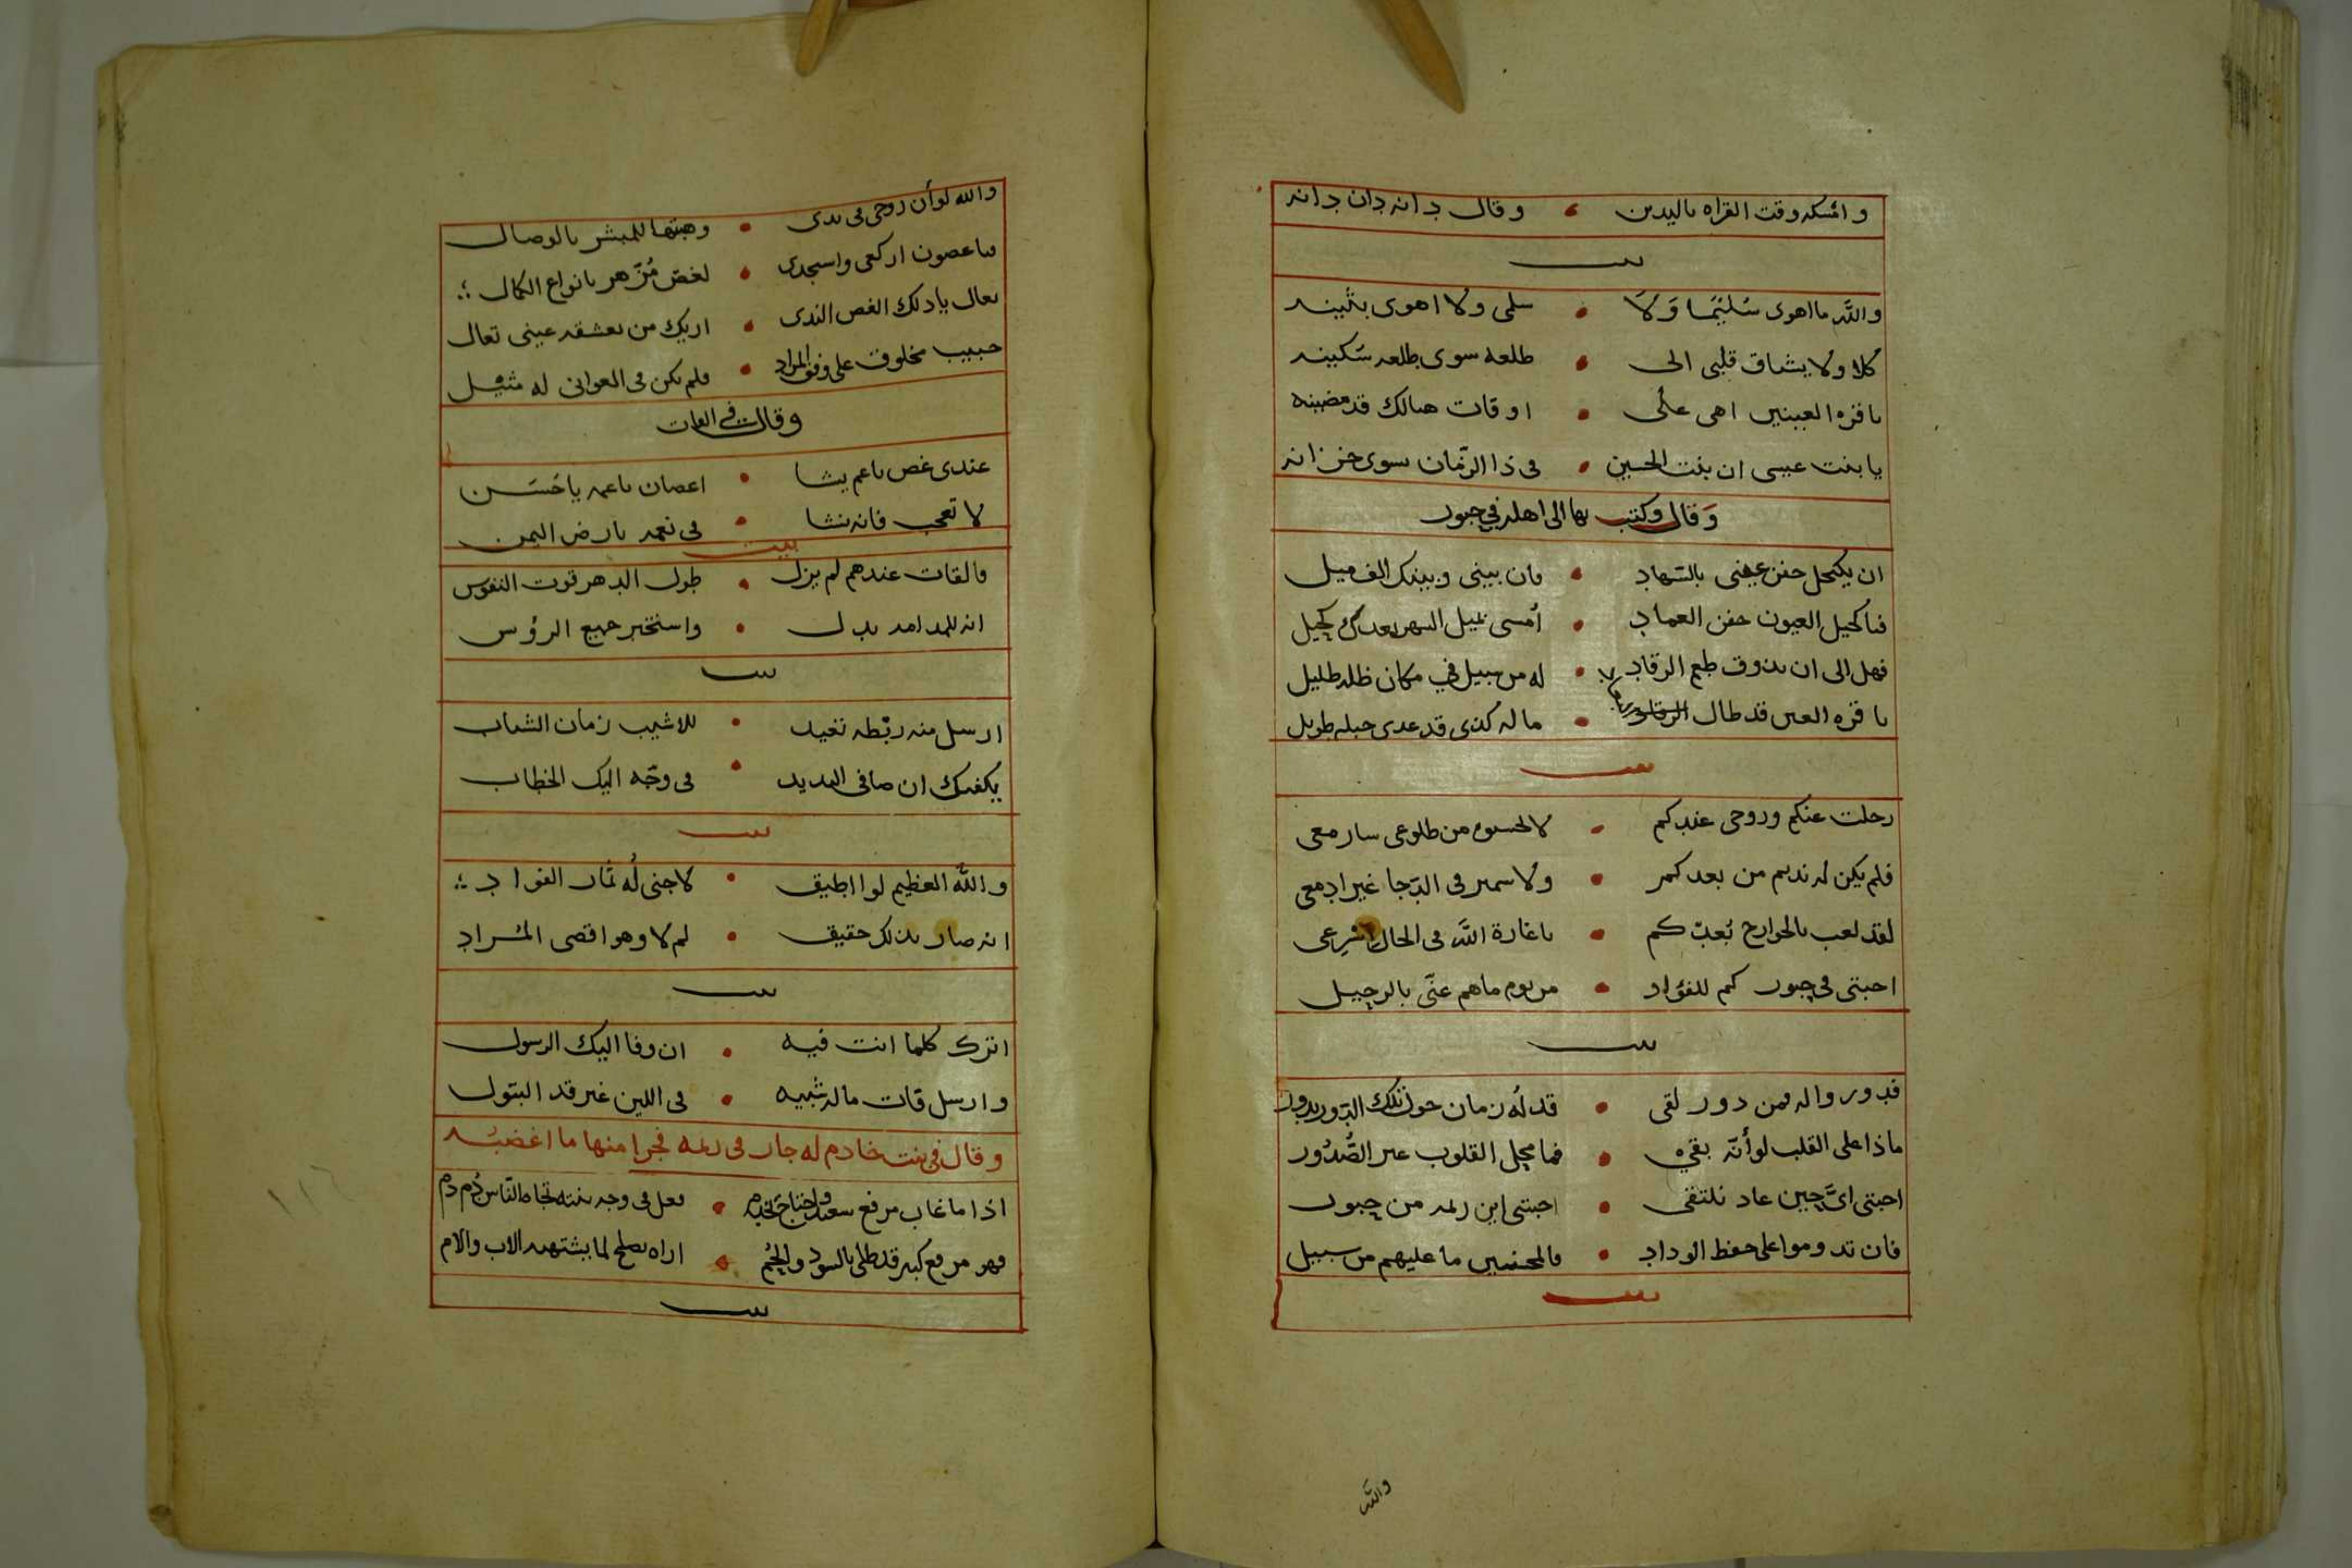 وامسكه وقت القراه باليدين • وقال دانه دان دانه
بيت
والله ما اهوى سليما ولا • سلمى ولا اهوى بثينه
كلا ولا يشاق قلبى الى • طلعه سوى طلعه سكينه
يا قره العينين اهى على • اوقات هنالك قد مضينه
يا بنت عيسى ان بنت الحسين • فى ذا الزمان سوى خزانه
وقال وكتب بها الى اهله في جبور
ان يكتحل جفن عينى بالسهاد • فان بينى وبينك الف ميل
فيا كحيل العيون جفن العماد • أمسى بميل السهر بعدك كحيل
فهل الى ان يذوق طعم الرقاد • له من سبيل في مكان ظله ظليل
يا قره العين قد طال • ما له كذى قد عدى حبله طويل
بيت
رحلت عنكم وروحى عندكم • لا من طلوعى سار معى
فلم يكن له نديم من بعدكم • ولا سمير فى الدجا غير ادمعى
لقد لعب بالجوارح بعدكم • يا غارة الله فى الحال اشرعى
احبتى فى جبور كم للفؤاد • من يوم ما هم عنى بالرحيل
بيت
فدور واله فمن دور لقى • قد له زمان حول تلك الدور يدور
ماذا على القلب لو أنه بقى • فما محل القلوب غير الصدور
احبتى اى حين عاد نلتقى • احبتى اين ريمه من جبور
فان تدوموا على حفظ الوداد • فالمحسنين ما عليهم من سبيل
بيت
والله
والله لو أن روحى فى يدى • وهبتها للمبشر بالوصال
يا غصون اركعى واسجدى • لغصن مزهر بانواع الكمال
تعال يا ذلك الغصن الندى • اريك من تعشقه عينى تعال
حبيب مخلوق على وفق المراد • فلم يكن فى الغوانى له مثيل
وقال في القات
عندى غصن ناعم يشا • اغصان ناعمه يا حسن
لا تعجب فانه نشا • فى نعمه بارض اليمن
بيت
فالقات عندهم لم يزل • طول الدهر قوت النفوس
انه للمدامه بدل • واستخبر جميع الرؤس
بيت
ارسل منه ربطه تعيد • للاشيب زمان الشباب
يكفيك ان صافى البديد • فى وجه اليك الخطاب
بيت
والله العظيم لو اطيق • لاجنى له ثمار الفواد
انه صار بذلك حقيق • لم لا وهو اقصى المراد
بيت
اترك كلما انت فيه • ان وفا اليك الرسول
وارسل قات ماله شبيه • فى اللين غير قد البتول
وقال فى بنت خادم له جار فى ريمه فجرا منها ما اغضبه
اذا ما غاب مرفع سعيد واحتاج • فعل فى وجه بنته تجاه الناس دم دم
فهو مرفع كبير قد طلى بالسود والحم • اراه يصلح لما يشتهيه الاب والام
بيت
١١٦